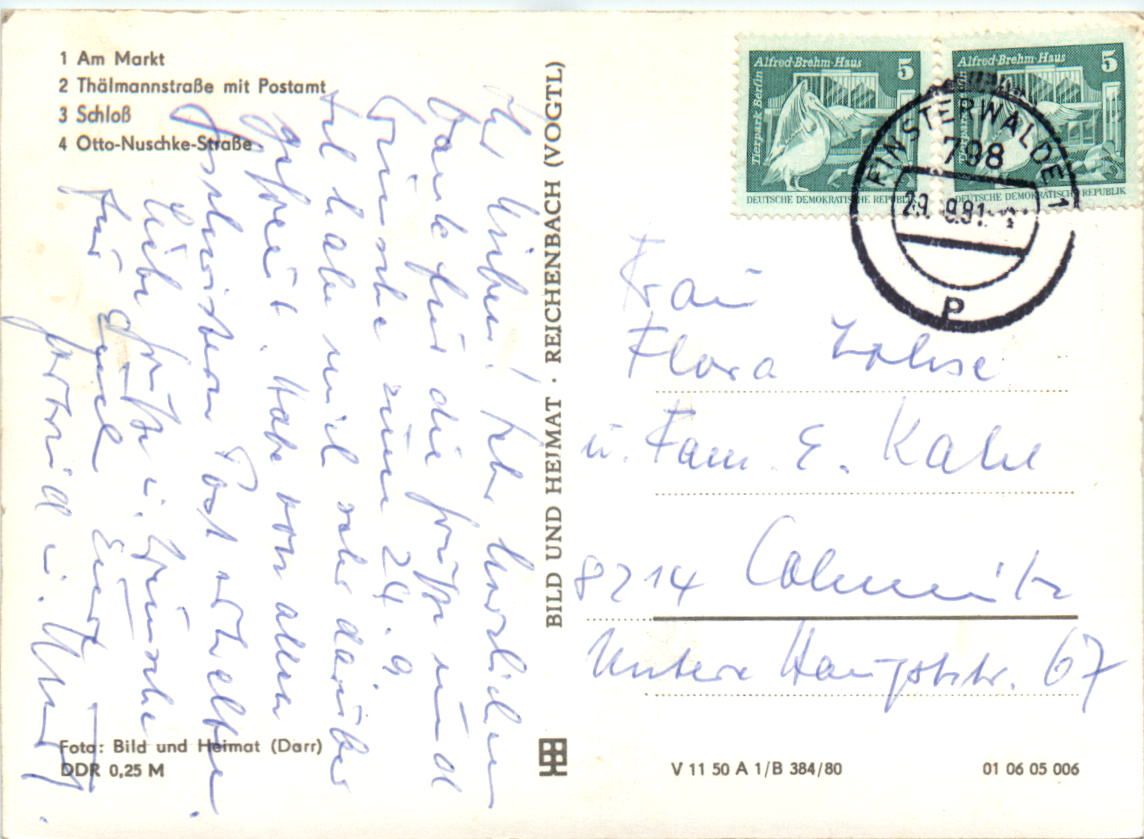 1 Am Markt
2 Thälmannstraße mit Postamt
3 Schloß
4 Otto-Nuschke-Straße
Ihr Lieben! Sehr herzlichen
Dank für die Grüße und
Wünsche zum 24. 9.
Ich habe mich sehr darüber
gefreut. Habe von allen
Geschwistern Post erhalten.
Liebe Grüße u. Wünsche
für Euch Eure
Gertrud u.
Foto: Bild und Heimat (Darr)
DDR 0,25 M
BILD UND HEIMAT · REICHENBACH (VOGTL)
Alfred-Brehm-Haus 5
Tierpark Berlin
DEUTSCHE DEMOKRATISCHE REPUBLIK
Alfred-Brehm-Haus 5
DEUTSCHE DEMOKRATISCHE REPUBLIK
FINSTERWALDE 1
798
29. 9.81
P
Frau
Flora Lohse
u. Fam. E. Kahl
8214 Colmnitz
Untere Hauptstr. 67
V 11 50 A 1/B 384/80
01 06 05 006